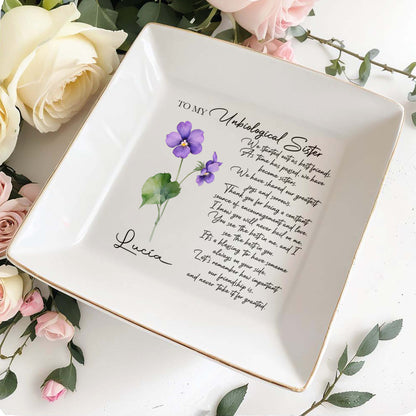 TO MY Unbiological Sister
We started out as best friends
&As time has passed we have
become sisters.
We have shared our greatest
joys and sorrows.
Thank you for being a constant
source of encouragement and love.
I know you will never bail on me.
You see the best in me, and I
see the best in you.
It's a blessing to have someone
always on your side.
Let's remember how important
our friendship is,
and never take it for granted.
Lucia